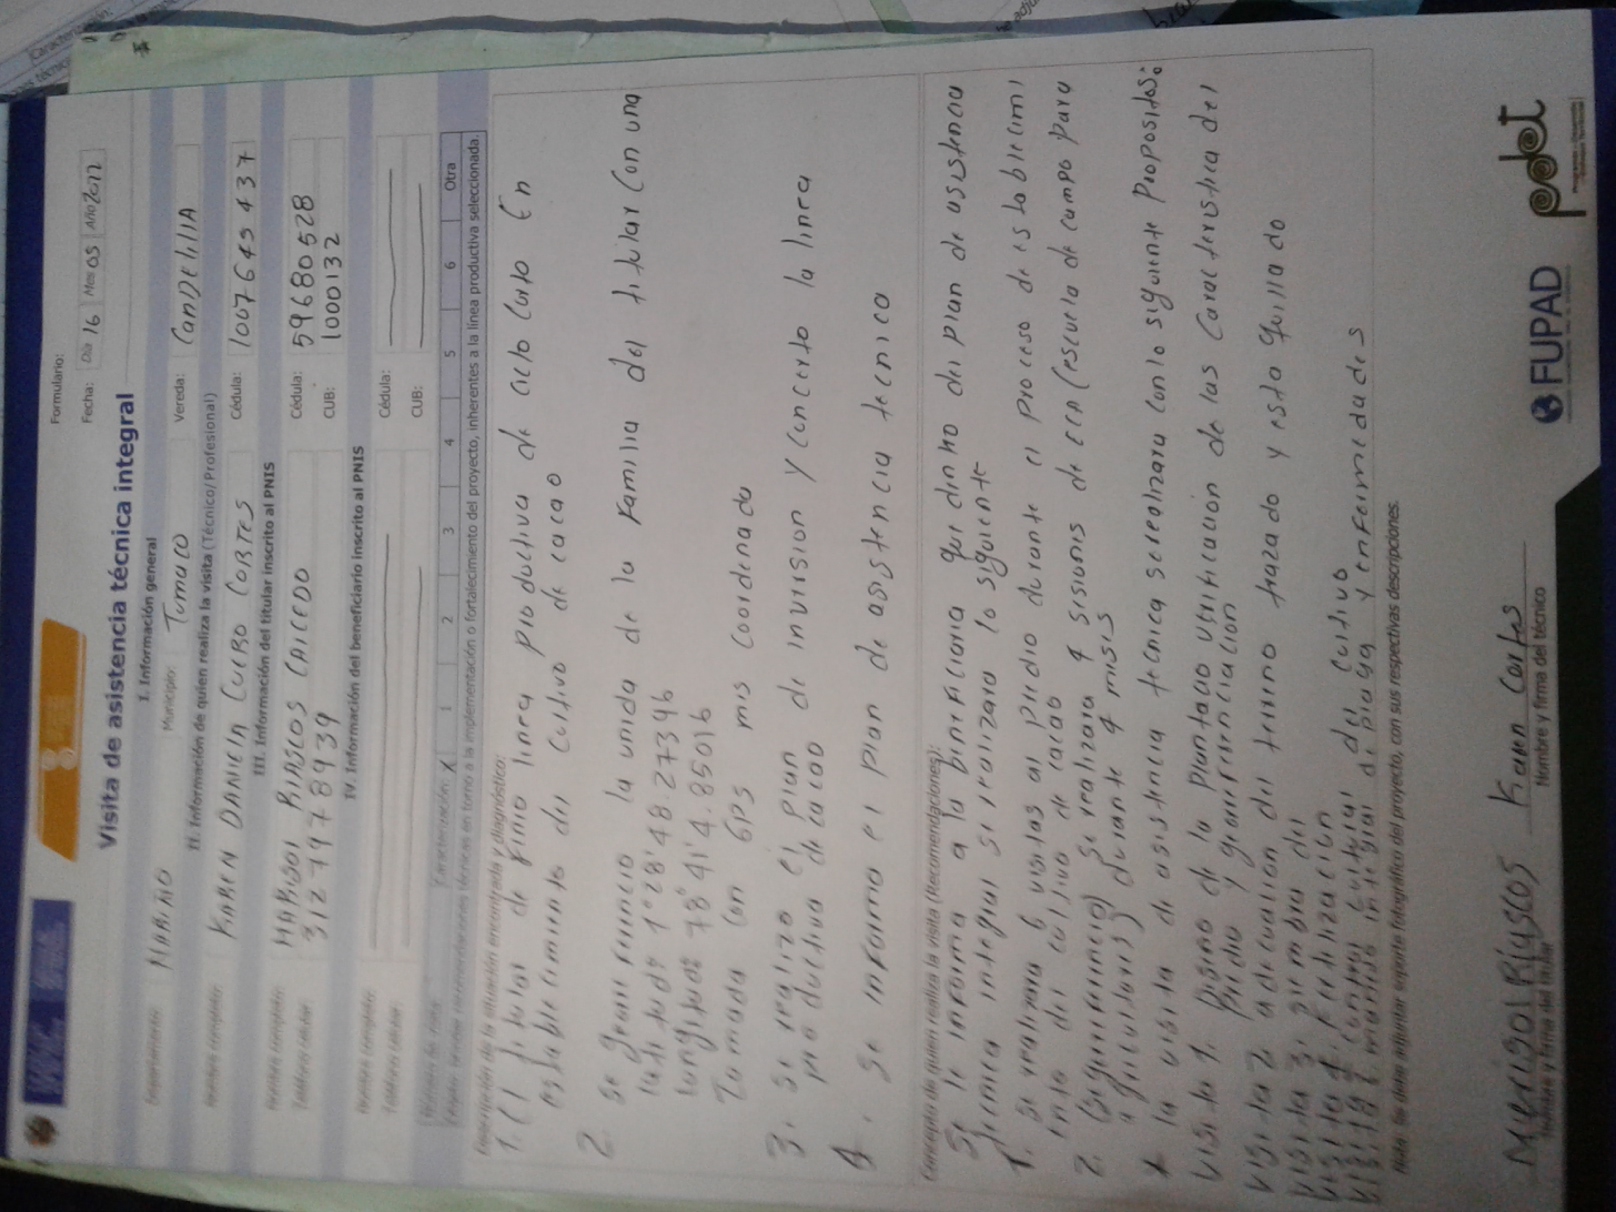 Formulario:
Fecha: Día 16 Mes 05 Año 2022
Visita de asistencia técnica integral
I. Información general
Departamento: NARIÑO Municipio: Tumaco Vereda: CANDELILLA
II. Información de quien realiza la visita (Técnico/Profesional)
Nombre completo: KAREN DANIELA CUERO CORTES Cédula: 1007645437
III. Información del titular inscrito al PNIS
Nombre completo: MARISOL RIASCOS CAICEDO Cédula: 59680528
Teléfono celular: 3127978939 CUB: 1000132
IV. Información del beneficiario inscrito al PNIS
Nombre completo: Cédula:
Teléfono celular: CUB:
Caracterización: X 1 2 3 4 5 6 Otra
recomendaciones técnicas en torno a la implementación o fortalecimiento del proyecto, inherentes a la línea productiva seleccionada.
Descripción de la situación encontrada y diagnóstico:
1. El titular de finio linea productiva de ciclo corto En
establecimiento del cultivo de cacao
2. se georeferencio la unida de la Familia del titular Con una
latitud: 1°28'48.27346
longitud: 78°41'4.85016
Tomada con GPS mis coordenada
3. se realizo el plan de invursion y concerto la linea
productiva de cacao
4. se informo el plan de asistencia tecnico
Concepto de quien realiza la visita (Recomendaciones):
se le informa a la beneficiaria que dinho del plan de asistencia
tecnica integral se realizara lo siguiente
1. se realizara 6 visitas al predio durante el proceso de establecimi
ento del cultivo de cacao
2. se realizara 4 sisiones de ECA (escuela de campo para
agricultores) durante 4 meses
* la visita de asistencia tecnica se realizara con lo siguiente Propositos:
Visita 1. Diseño de la plantacio verificacion de las Caracteristica del
predio y georeferenciacion
Visita 2 adecuacion del terreno trazado y esta quillado
Visita 3. siembra del
Visita 4. Fertilizacion
Visita 5. control cultural del cultivo
Visita 6. manejo integral de plaga y enfermedades
Nota: Se debe adjuntar soporte fotográfico del proyecto, con sus respectivas descripciones.
Marisol Riascos Karen Cortes
Nombre y firma del titular Nombre y firma del técnico
FUPAD pdet